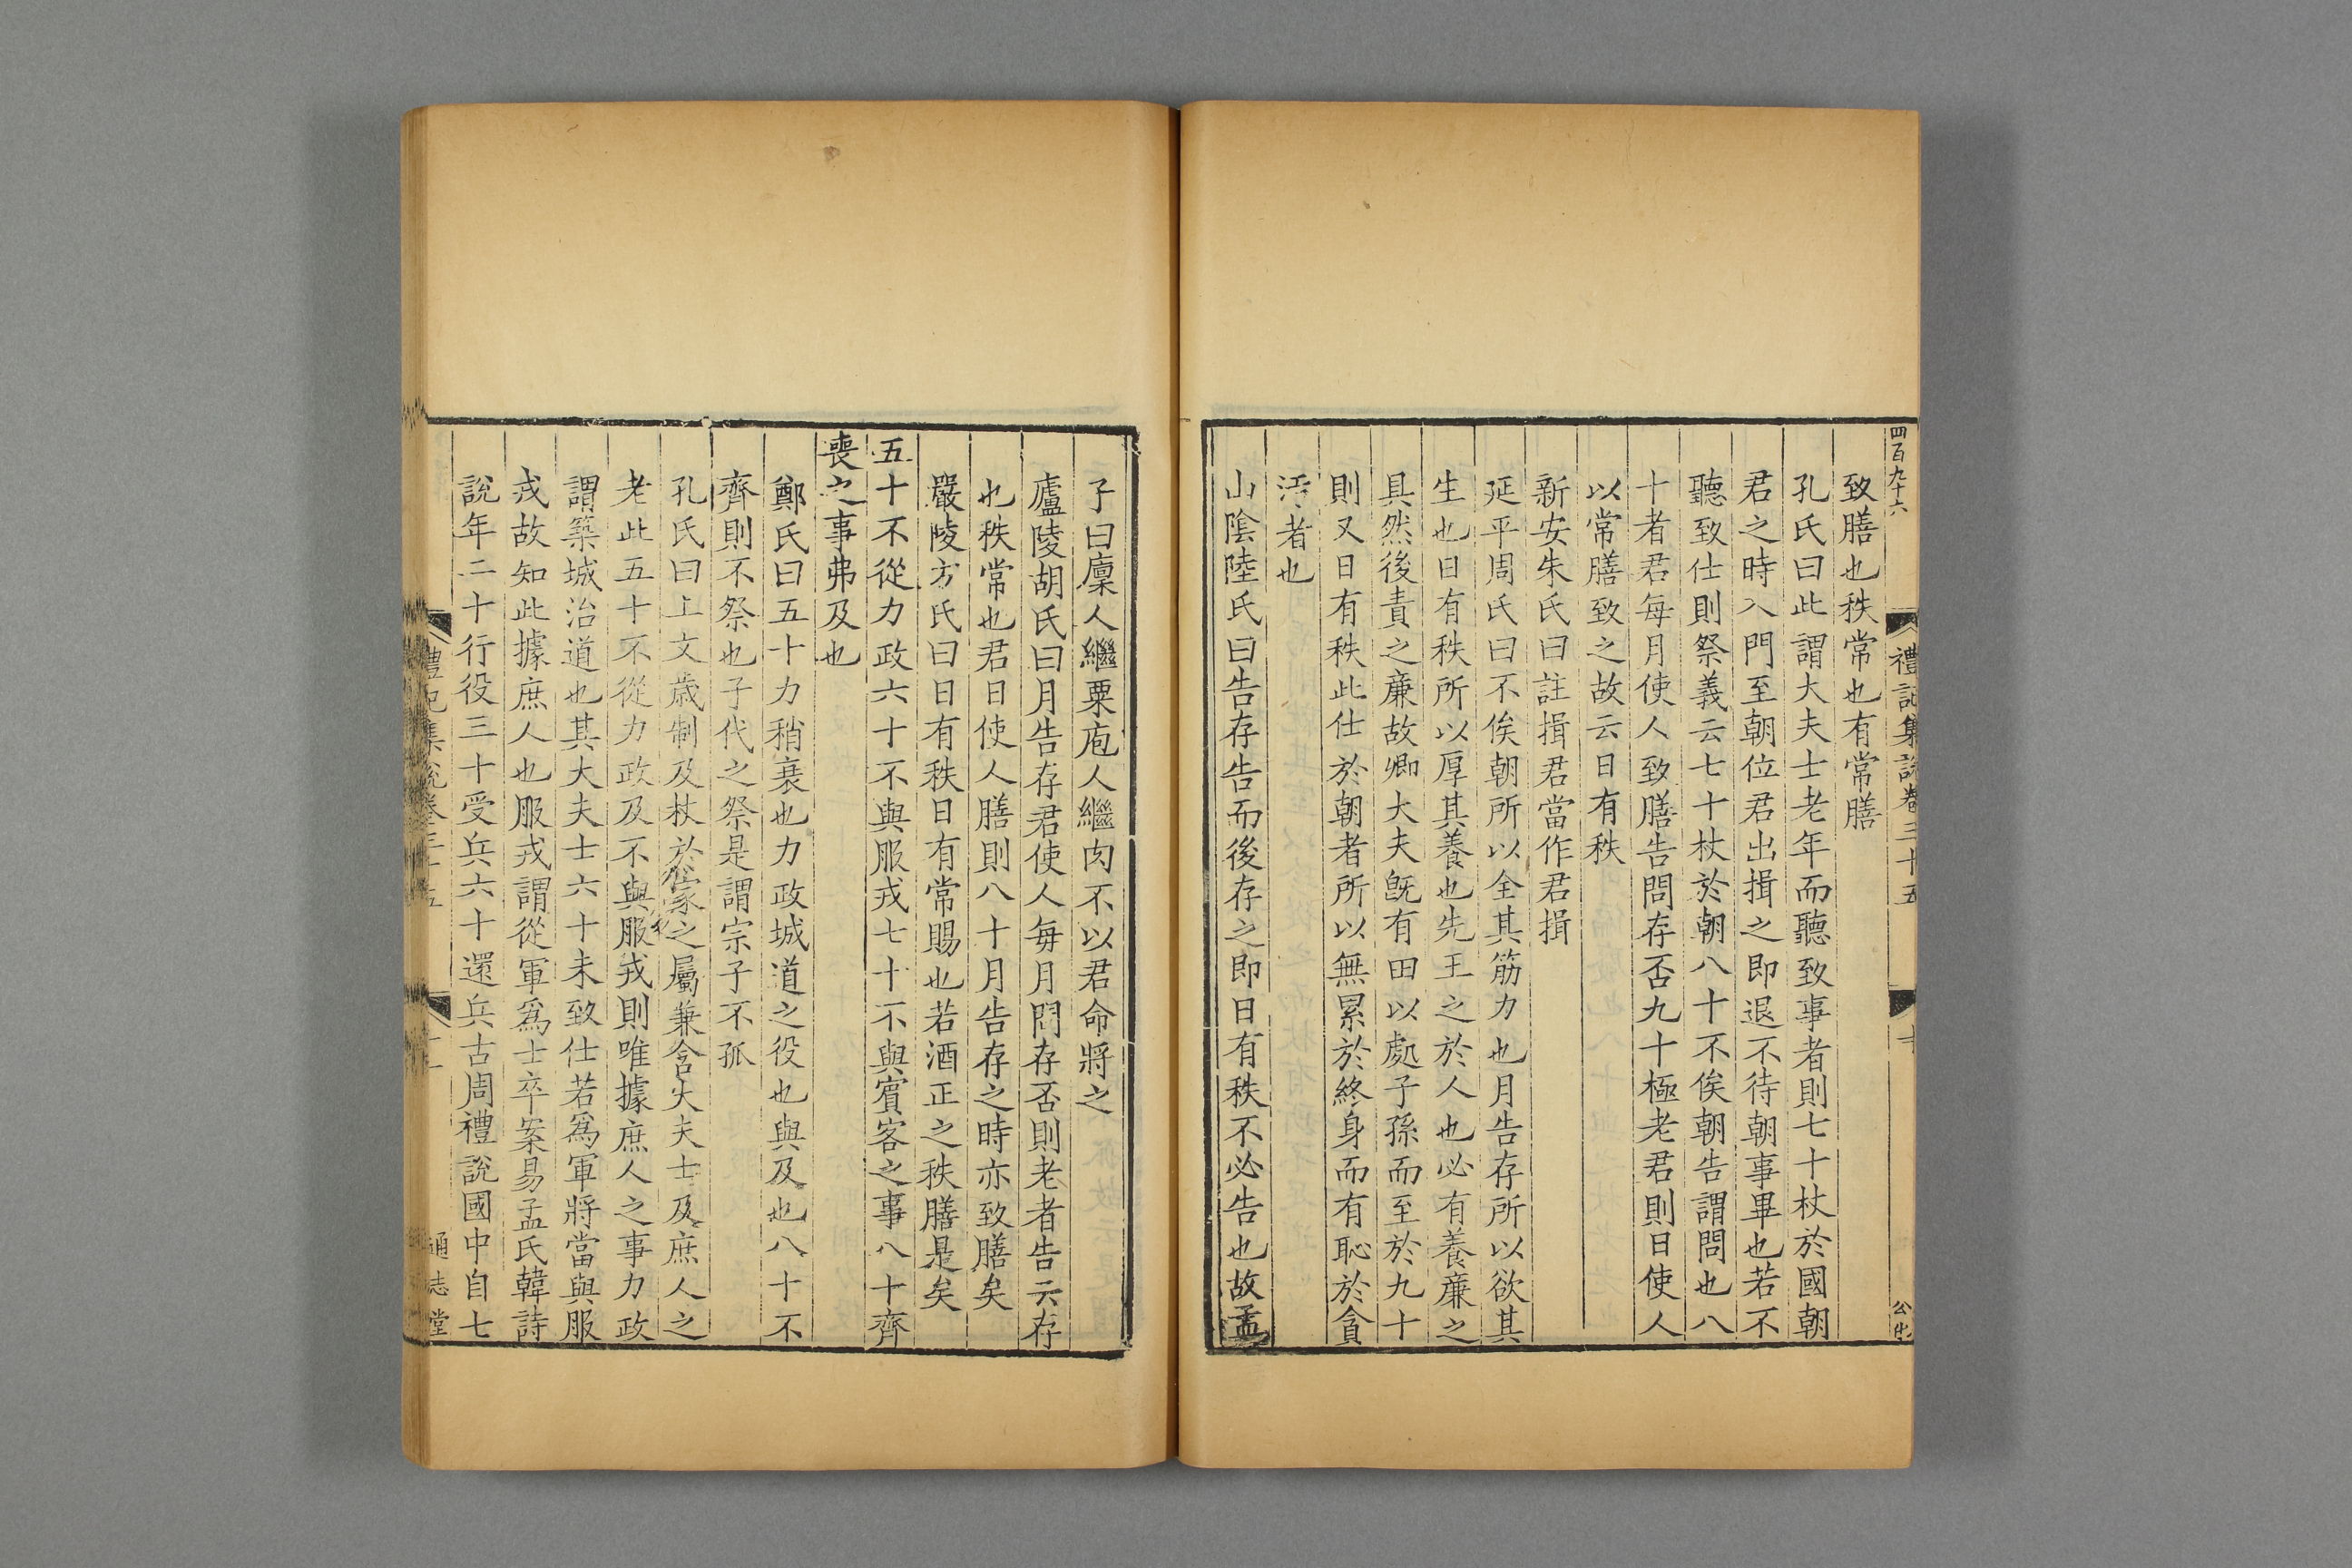 四百九十六
禮記集說卷三十五
十
致膳也秩常也有常膳
孔氏曰此謂大夫士老年而聽致事者則七十杖於國朝
君之時入門至朝位君出揖之即退不待朝事畢也若不
聽致仕則祭義云七十杖於朝八十不俟朝告謂問也八
十者君每月使人致膳告問存否九十極老君則日使人
以常膳致之故云日有秩
新安朱氏曰註揖君當作君揖
延平周氏曰不俟朝所以全其筋力也月告存所以欲其
生也日有秩所以厚其養也先王之於人也必有養廉之
具然後責之廉故卿大夫旣有田以處子孫而至於九十
則又日有秩此仕於朝者所以無累於終身而有恥於貪
汚者也
山陰陸氏曰告存告而後存之即日有秩不必告也故孟
子曰廩人繼粟庖人繼肉不以君命將之
廬陵胡氏曰月告存君使人每月問存否則老者告云存
也秩常也君日使人膳則八十月告存之時亦致膳矣
嚴陵方氏曰日有秩日有常賜也若酒正之秩膳是矣
五十不從力政六十不與服戎七十不與賓客之事八十齊
喪之事弗及也
鄭氏曰五十力稍衰也力政城道之役也與及也八十不
齊則不祭也子代之祭是謂宗子不孤
孔氏曰上文歲制及杖於家之屬兼含大夫士及庶人之
老此五十不從力政及不與服戎則唯據庶人之事力政
謂築城治道也其大夫士六十未致仕若爲軍將當與服
戎故知此據庶人也服戎謂從軍爲士卒案易孟氏韓詩
說年二十行役三十受兵六十還兵古周禮說國中自七
禮記集說卷三十五
十一
通志堂